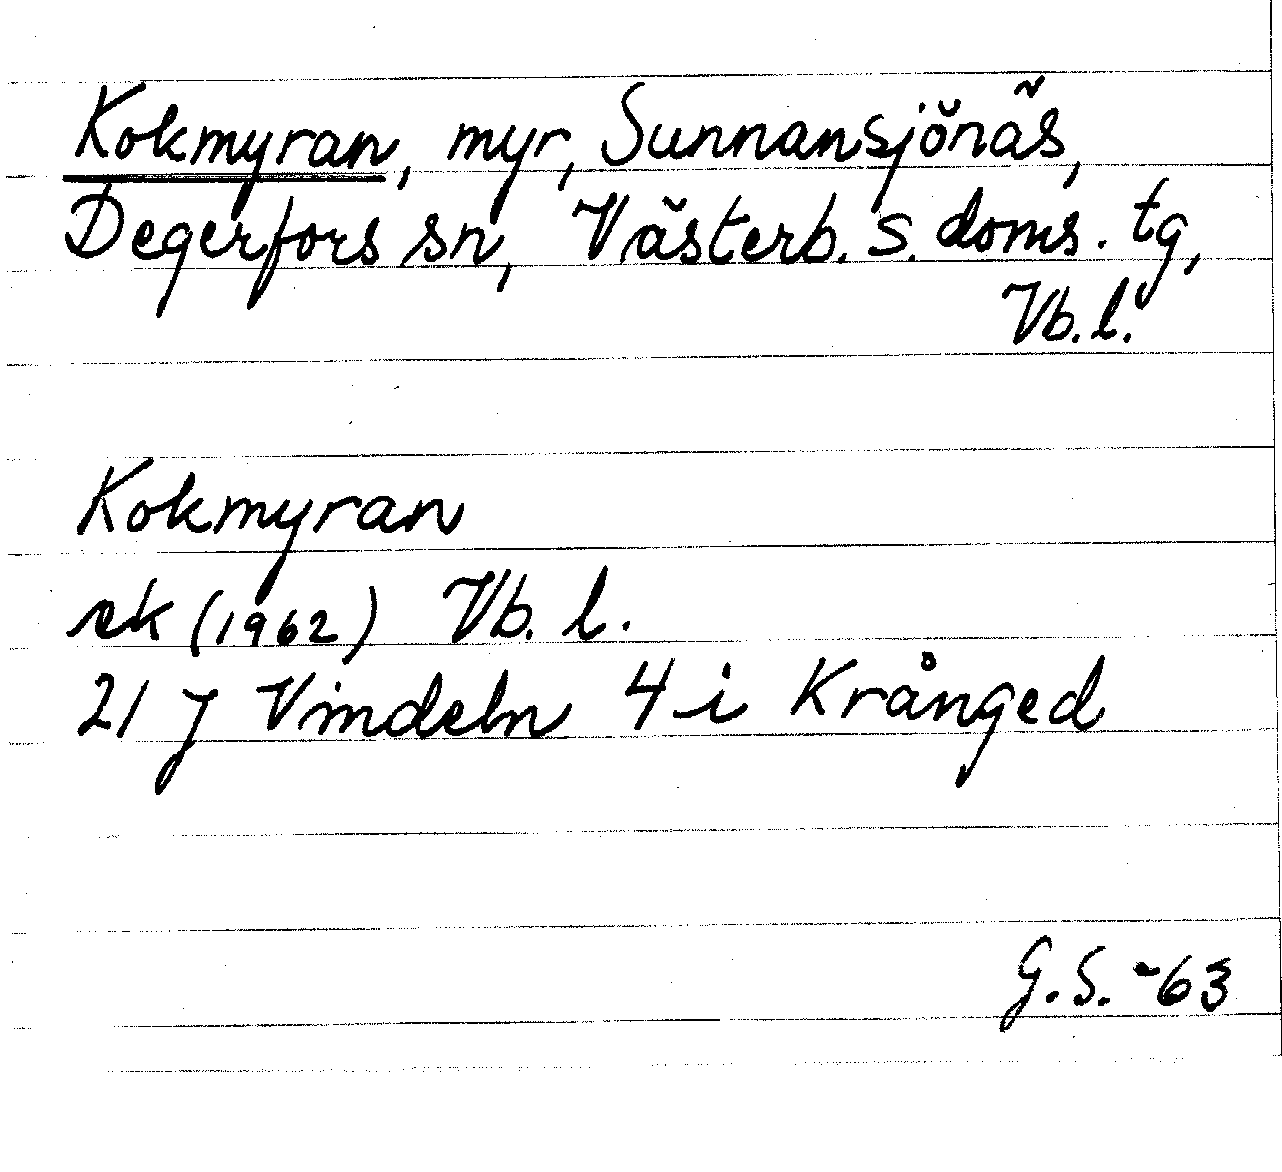 Kokmyran, myr, Sunnansjönäs,
Degerfors sn, Västerb. s. doms. tg,
Vb. l.
Kokmyran
ek (1962) Vb. l.
21 J Vindeln 4 i Krånged
G. S. -63